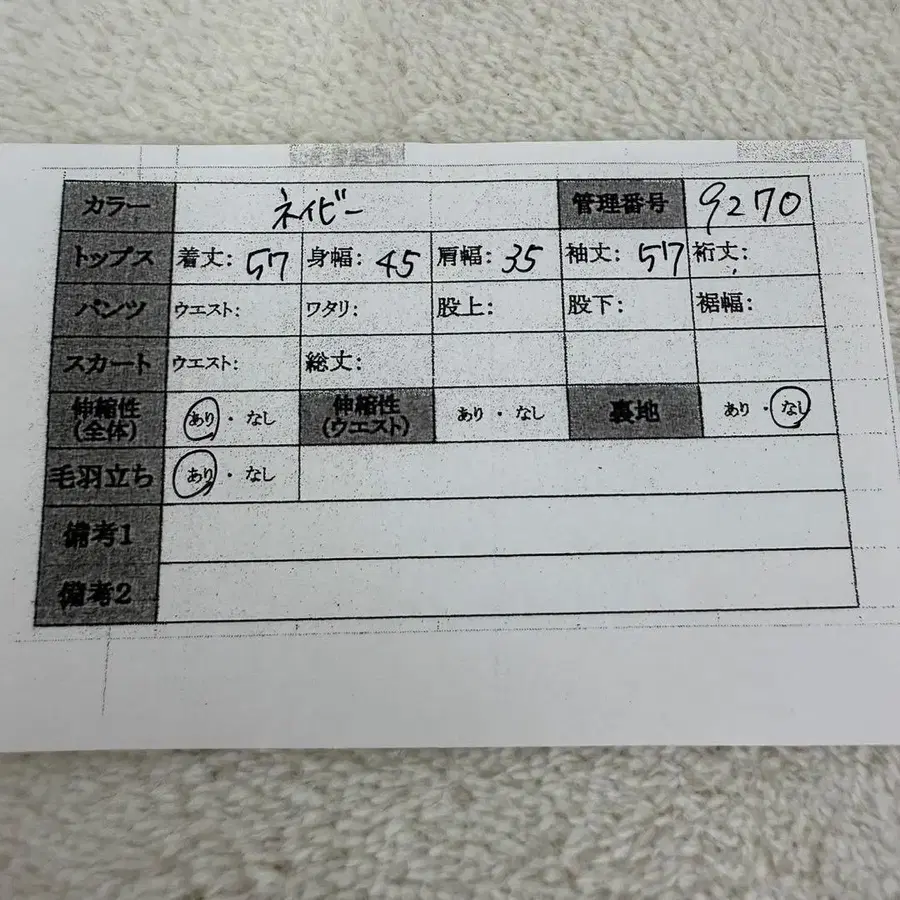 カラー ネイビー 管理番号 9270
トップス 着丈: 57 身幅: 45 肩幅: 35 袖丈: 57 裄丈:
パンツ ウエスト: ワタリ: 股上: 股下: 裾幅:
スカート ウエスト: 総丈:
伸縮性 (全体) あり・なし 伸縮性 (ウエスト) あり・なし 裏地 あり・なし
毛羽立ち あり・なし
備考1
備考2